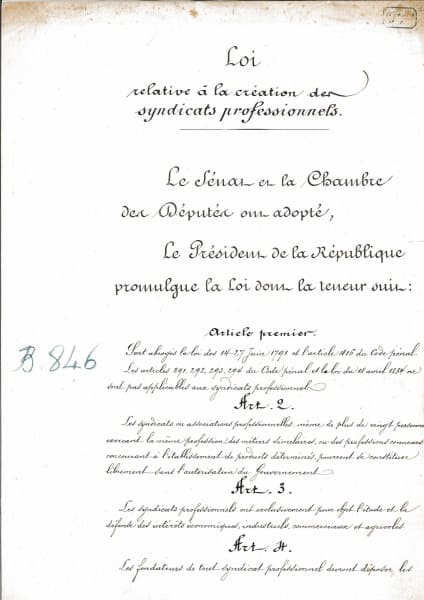 Loi
relative à la création des
syndicats professionnels.
Le Sénat et la Chambre
des Députés ont adopté,
Le Président de la République
promulgue la Loi dont la teneur suit :
B. 846
Article premier.
Sont abrogés la loi des 14-27 Juin 1791 et l'article 416 du Code pénal.
Les articles 291, 292, 293, 294 du Code pénal et la loi du 18 avril 1834 ne
sont pas applicables aux syndicats professionnels
Art. 2.
Les syndicats ou associations professionnelles, même de plus de vingt personnes
exerçant la même profession, des métiers similaires, ou des professions connexes
concourant à l'établissement de produits déterminés, pourront se constituer
librement sans l'autorisation du Gouvernement
Art. 3.
Les syndicats professionnels ont exclusivement pour objet l'étude et la
défense des intérêts économiques, industriels, commerciaux et agricoles
Art. 4.
Les fondateurs de tout syndicat professionnel devront déposer, les